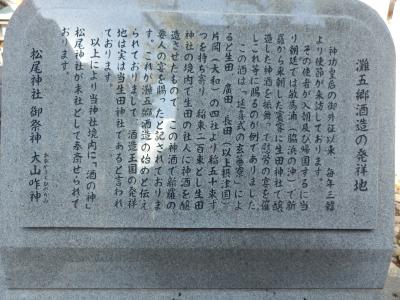 灘五郷酒造の発祥地
神功皇后の御外征以来 毎年三韓
より使節が来訪しております。
その使者が入朝及び帰国するに当
り朝廷では敏馬浦(脇浜の沖)で新
羅から来朝した賓客に生田神社で醸
造した神酒を振舞って慰労の宴を催
しこれ等に賜るのが例でありました
この酒は「延喜式の玄蕃寮」によ
ると生田 廣田 長田(以上摂津国)
片岡(大和)の四社より稲五十束ず
つを持ち寄り 稲束二百束とし生田
神社の境内で生田の社人に神酒を醸
造させたもので、この神酒で新羅の
要人の宴を賜ったと記されておりま
す。これが灘五郷酒造の始めと伝え
られておりまして 酒造王国の発祥
地は実は当生田神社であると言われ
ております。
以上により当神社境内に「酒の神」
松尾神社が末社として奉斎せられて
おります。
松尾神社 御祭神 大山咋神
おおやまくひのかみ